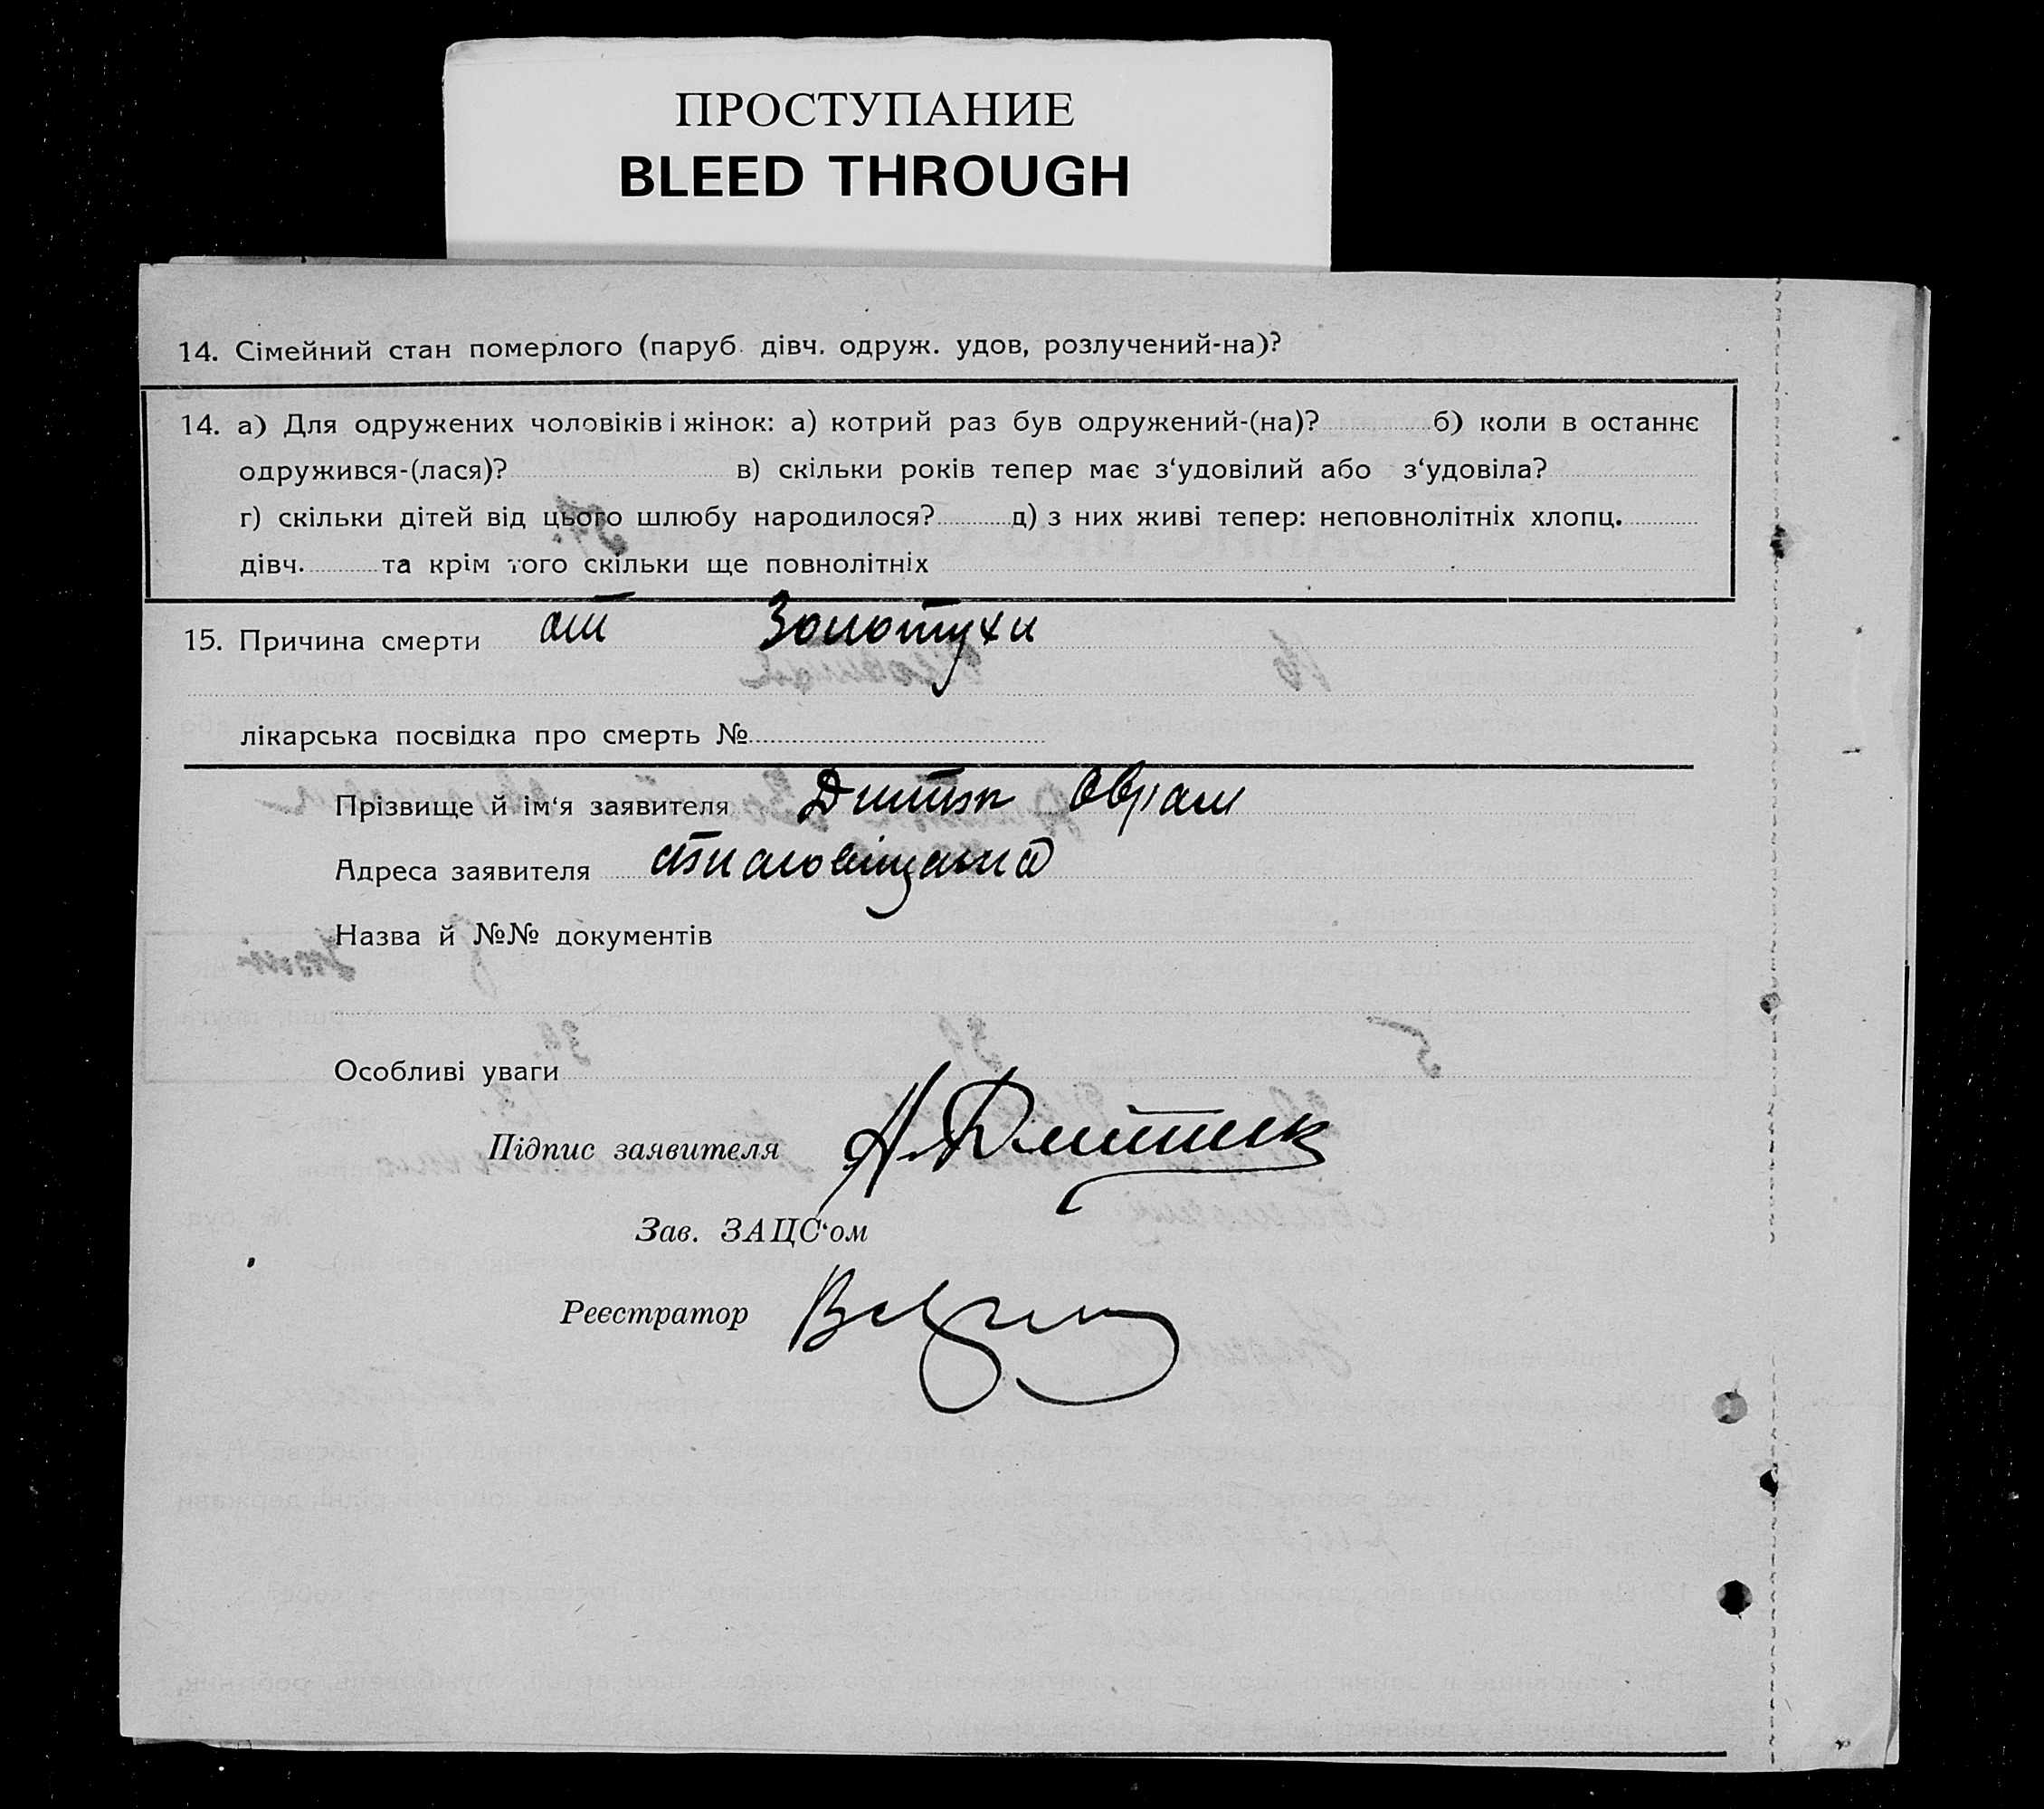 ПРОСТУПАНИЕ
BLEED THROUGH
14. Сімейний стан померлого (паруб. дівч. одруж. удов, розлучений-на)?
14. а) Для одружених чоловіків і жінок: а) котрий раз був одружений-(на)? б) коли в останнє
одружився-(лася)? в) скільки років тепер має з‘удовілий або з‘удовіла?
г) скільки дітей від цього шлюбу народилося? д) з них живі тепер: неповнолітніх хлопц.
дівч. та крім того скільки ще повнолітніх
15. Причина смерти от Золотухи
лікарська посвідка про смерть №
Прізвище й ім‘я заявителя Аврам
Адреса заявителя
Назва й №№ документів
Особливі уваги
Підпис заявителя
Зав. ЗАЦС‘ом
Реєстратор